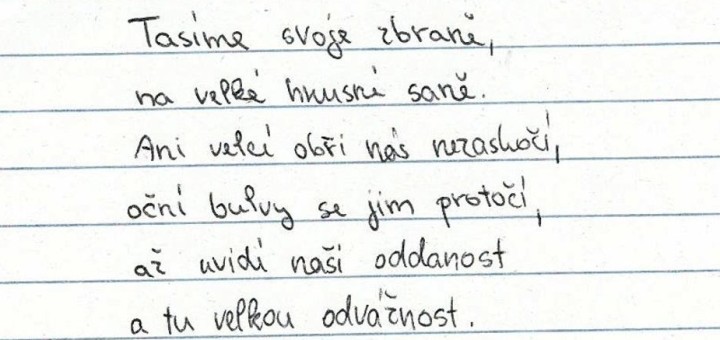 Tasíme svoje zbraně,
na velké hnusné saně.
Ani velcí obři nás nezaskočí,
oční bulvy se jim protočí,
až uvidí naši oddanost
a tu velkou odvážnost.